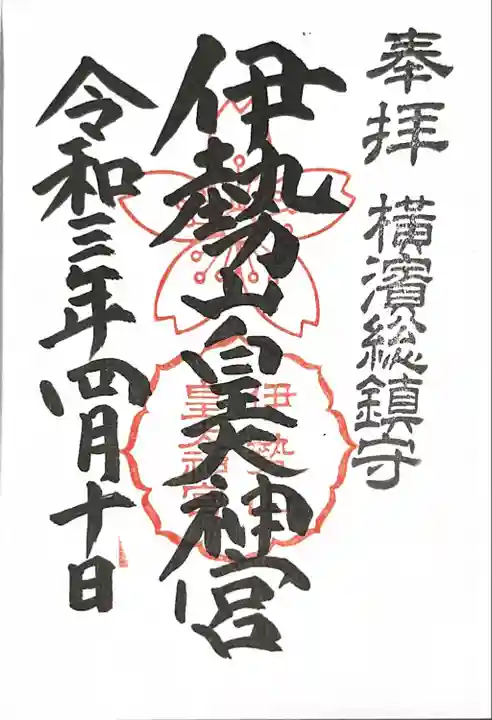 奉拝 横濱総鎮守
伊勢山皇大神宮
伊勢山
皇大神宮
令和三年四月十日